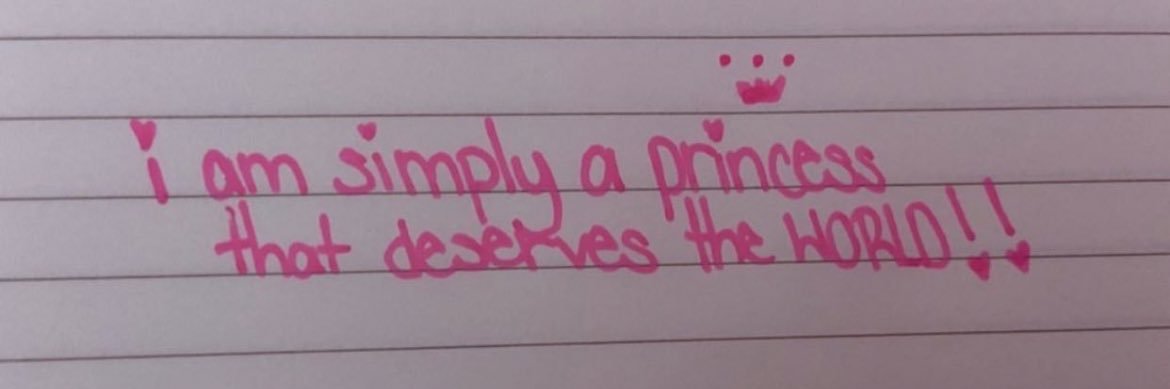 i am simply a princess
that deserves the WORLD!!